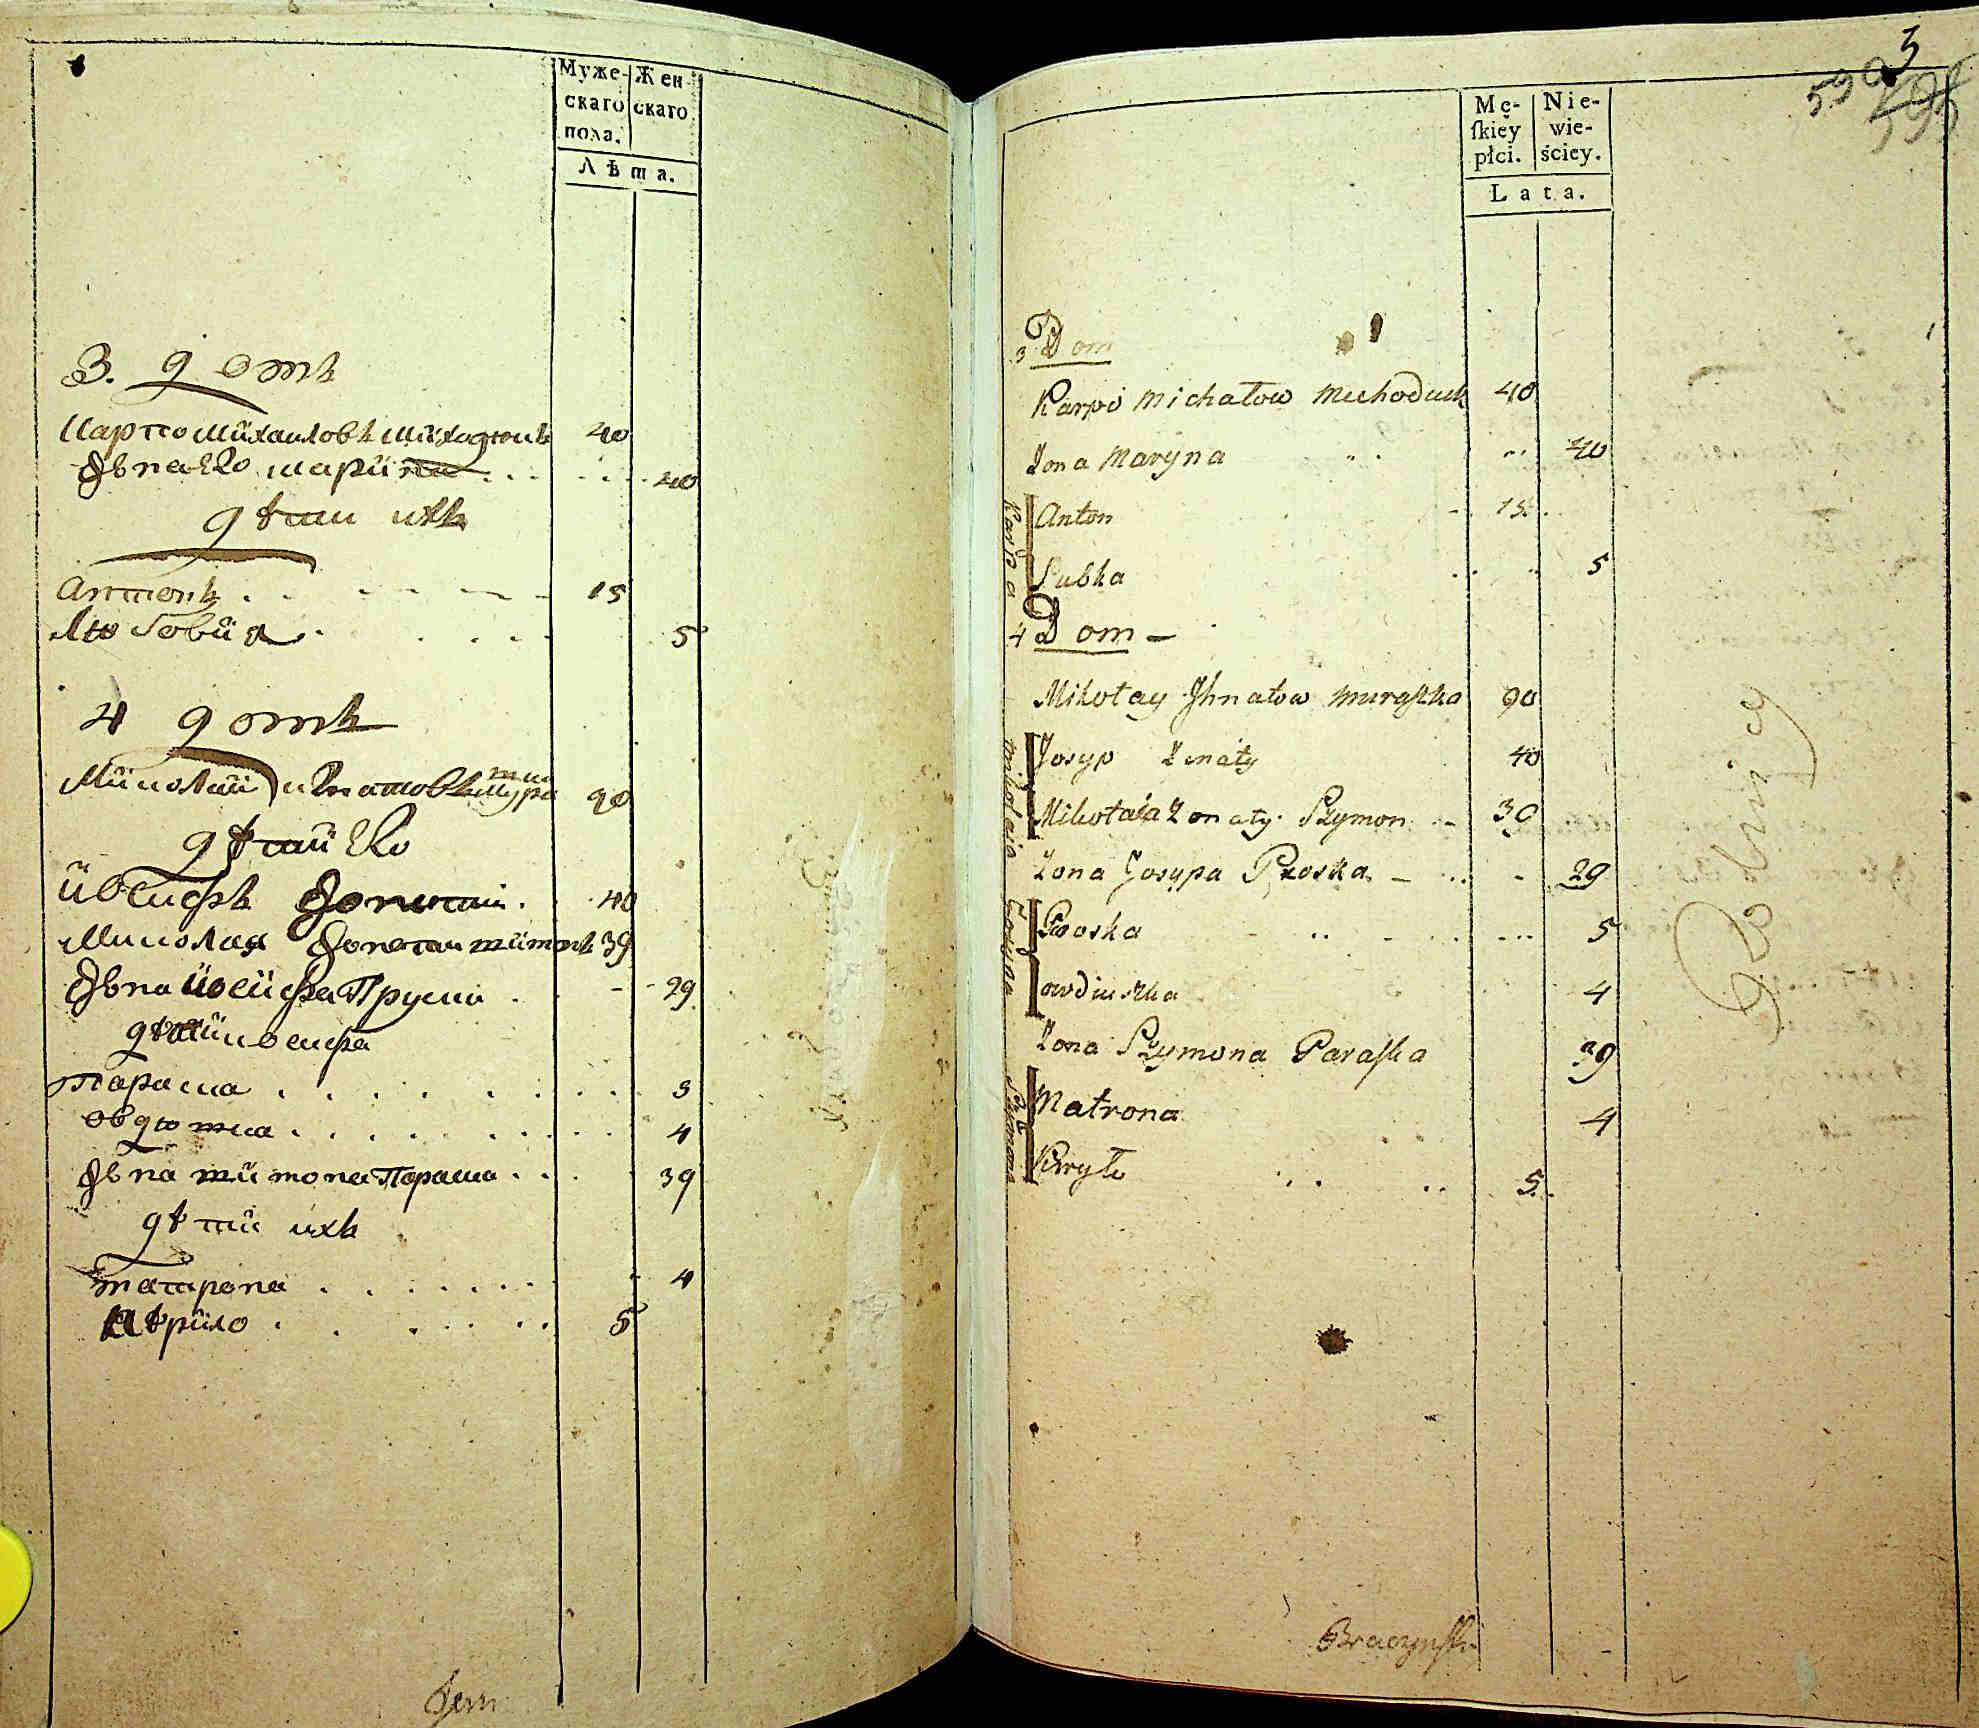 Муже-
скаго
пола.
Жен-
скаго
Лѣта.
3. домъ
Карпо Михаиловъ Миходюкъ 40
жена Ево Марина 40
дѣти ихъ
Антонъ 15
Любовия 5
4 домъ
Миколай Игнатовъ Мурашка 90
дѣти Ево
Иосифъ женатии 40
Миколая женати Симонъ 39
жена Иосифа Пруска 29
дѣти Иосифа
Параска 5
овдюшка 4
жена Симона Параска 39
дѣти ихъ
Матрона 4
Кѣрило 5
5
590
595
Mę-
ſkiey
płci.
Nie-
wie-
ściey.
Lata.
3 Dom
Karpo Michałow Michoduk 40
Zona Maryna 40
Karpa
Anton 15
Lubka 5
4 Dom
Mikołay Ihnatow Muraſzka 90
Mikołaia
Josyp Zonaty 40
Mikołaia Zonaty Szymon 30
Zona Josypa Proska 29
Josypa
Proska 5
owdiuszka 4
Zona Szymona Paraſka 39
Szymona
Matrona 4
Kiryło 5
Braczynſki